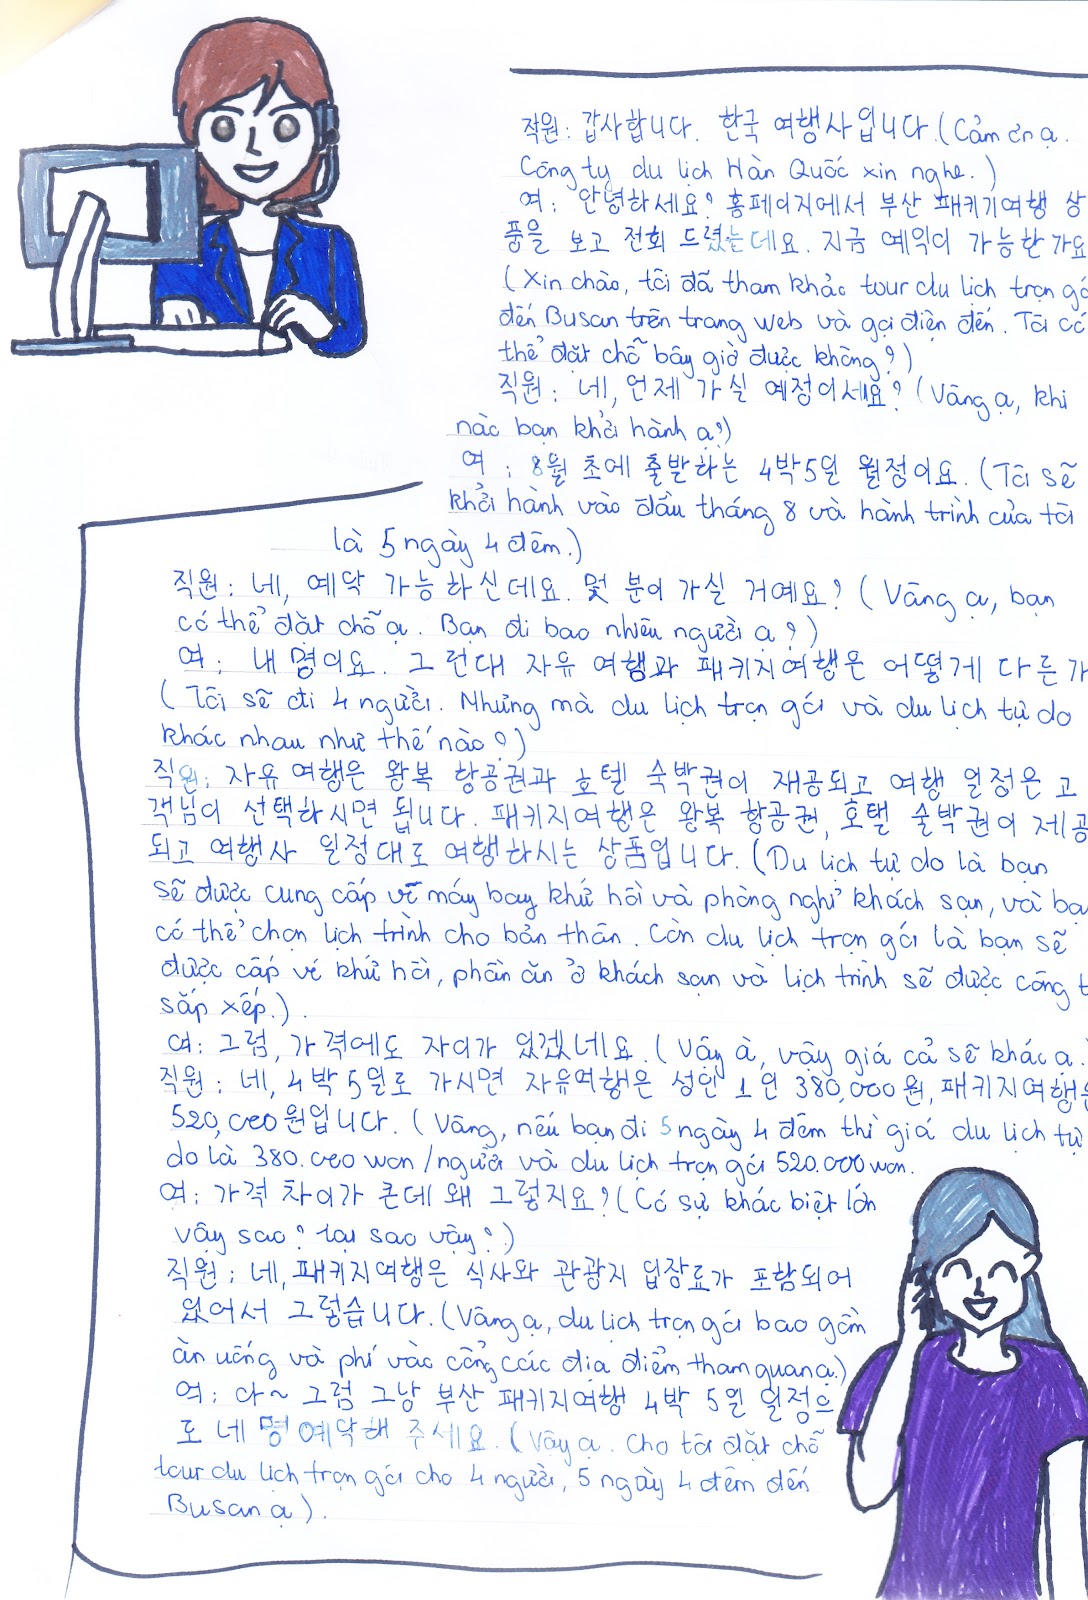 직원: 감사합니다. 한국 여행사입니다. (Cảm ơn ạ.
Công ty du lịch Hàn Quốc xin nghe.)
여: 안녕하세요? 홈페이지에서 부산 패키기여행 상
품을 보고 전회 드렸는데요. 지금 예익이 가능한가요
(Xin chào, tôi đã tham khảo tour du lịch trọn gó
đến Busan trên trang web và gọi điện đến. Tôi có
thể đặt chỗ bây giờ được không?)
직원: 네, 언제 가실 예정이세요? (Vâng ạ, khi
nào bạn khởi hành ạ?)
여: 8월 초에 출발하는 4박5일 일정이요. (Tôi sẽ
khởi hành vào đầu tháng 8 và hành trình của tôi
là 5 ngày 4 đêm.)
직원: 네, 예약 가능하신데요. 몇 분이 가실 거예요? (Vâng ạ, bạn
có thể đặt chỗ ạ. Bạn đi bao nhiêu người ạ?)
여: 내 명이요. 그런대 자유 여행과 패키지여행은 어떻게 다른가
(Tôi sẽ đi 4 người. Nhưng mà du lịch trọn gói và du lịch tự do
khác nhau như thế nào?)
직원: 자유 여행은 왕복 항공권과 호텔 숙박권이 재공되고 여행 일정은 고
객님이 선택하시면 됩니다. 패키지여행은 왕복 항공권, 호탤 술박권이 제공
되고 여행사 일정대로 여행하시는 상품입니다. (Du lịch tự do là bạn
sẽ được cung cấp vé máy bay khứ hồi và phòng nghỉ khách sạn, và bạ
có thể chọn lịch trình cho bản thân. Còn du lịch trọn gói là bạn sẽ
được cấp vé khứ hồi, phần ăn ở khách sạn và lịch trình sẽ được công t
sắp xếp.)
여: 그럼, 가격에도 자이가 있겠네요. (Vậy à, vậy giá cả sẽ khác ạ.
직원: 네, 4박 5일로 가시면 자유여행은 성인 1인 380,000원, 패키지여행은
520,000원입니다. (Vâng, nếu bạn đi 5 ngày 4 đêm thì giá du lịch tự
do là 380.000 won/người và du lịch trọn gói 520.000 won.
여: 가격 차이가 큰데 왜 그렇지요? (Có sự khác biệt lớn
vậy sao? tại sao vậy?)
직원: 네, 패키지여행은 식사와 관광지 입장료가 포함되어
있어서 그렇습니다. (Vâng ạ, du lịch trọn gói bao gồm
ăn uống và phí vào cổng các địa điểm tham quan ạ.)
여: 아~ 그럼 그냥 부산 패키지여행 4박 5일 일정으
로 네 명 예약해 주세요. (Vậy ạ. Cho tôi đặt chỗ
tour du lịch trọn gói cho 4 người, 5 ngày 4 đêm đến
Busan ạ).